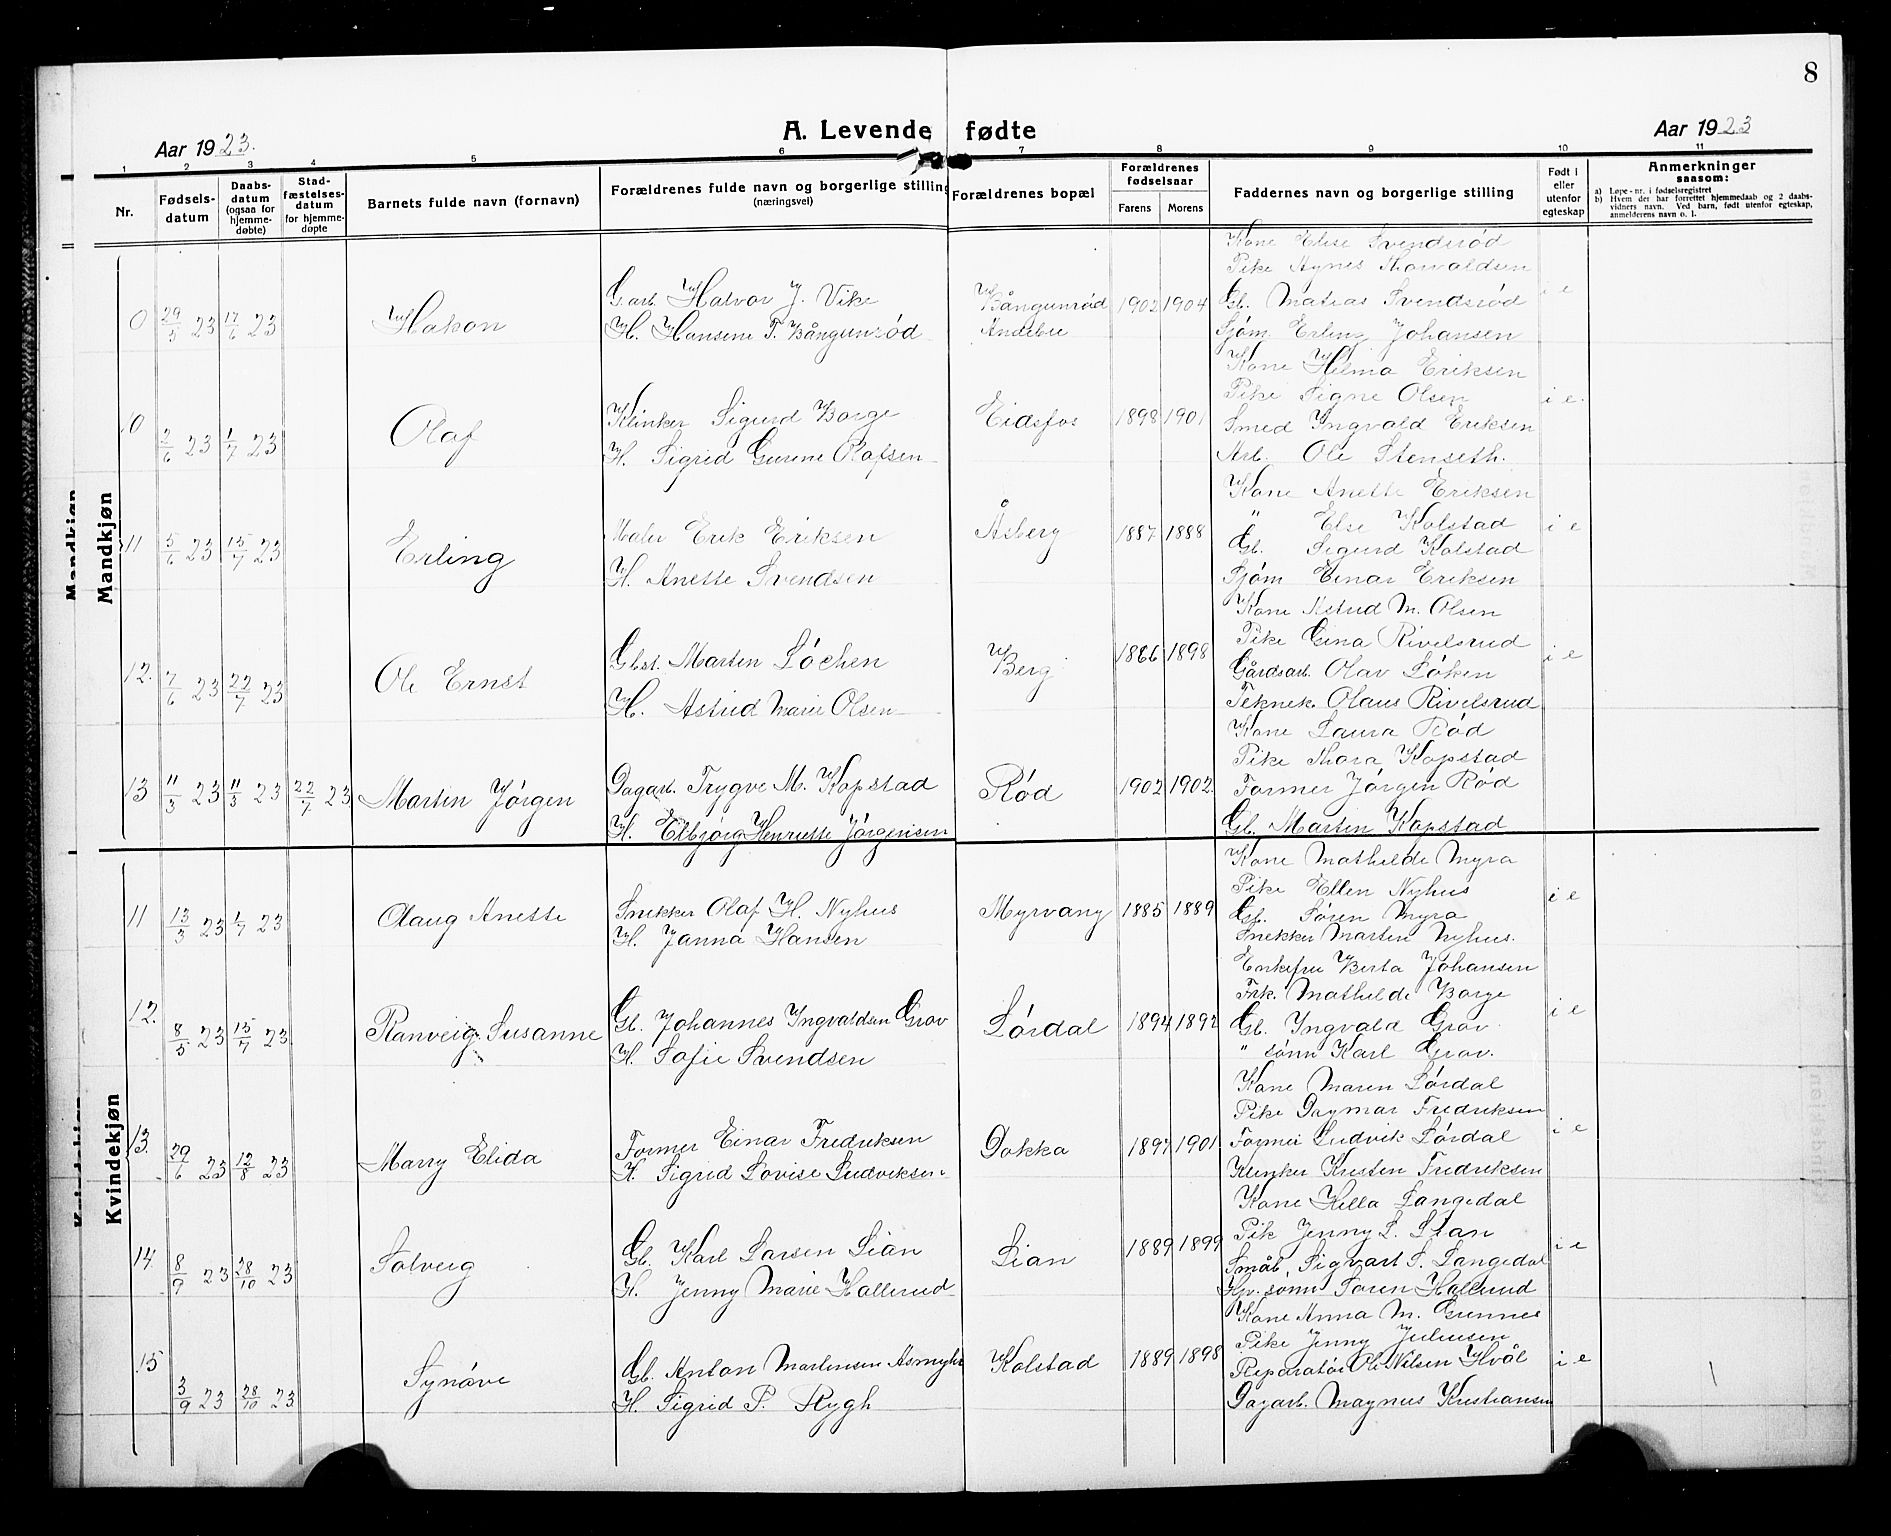 8
A. Levende fødte
Aar 1923.
Aar 1923
1 2 3 4 5 6 7 8 9 10 11
Nr.
Fødsels-datum
Daabs-datum (ogsaa for hjemme-døbte)
Stad-fæstelses-datum for hjemme-døpte
Barnets fulde navn (fornavn)
Forældrenes fulde navn og borgerlige stilling (næringsvei)
Forældrenes bopæl
Forældrenes fødselsaar
Farens Morens
Faddernes navn og borgerlige stilling
Født i eller utenfor egteskap
Anmerkninger saasom:
a) Løpe-nr. i fødselsregistret
b) Hvem der har forrettet hjemmedaab og 2 daabs-
vidners navn. Ved barn, født utenfor egteskap,
anmelderens navn o. l.
Mandkjøn
Kone Elise Svendsrød
Pike Agnes Thorvaldsen
0 29/5 23 17/6 23 Hakon Garb. Halvor J. Vike Bångunrød 1902 1904 Gb. Matias Svendsrød i e
H. Hansine T. Bångunrød Andebu Sjøm. Erling Johansen
Kone Hilma Eriksen
Pike Signe Olsen
10 2/6 23 1/7 23 Olaf Klinker Sigurd Borge Eidsfos 1898 1901 Smed Ingvald Eriksen i e.
H. Sigrid Gurine Olafsen Arb. Ole Stenseth.
Kone Anette Eriksen
" Else Kolstad
11 5/6 23 15/7 23 Erling Maler Erik Eriksen Åsberg 1887 1888 Gb. Sigurd Kolstad i e
H. Anette Svendsen Sjøm Einar Eriksen
Kone Astrid M. Olsen
Pike Gina Rivelsrud
12. 7/6 23 22/7 23 Ole Ernst Gbst. Martin Løchen Berg 1886 1898 Gårdsarb. Olav Løken i e
H. Astrid Marie Olsen Teknek. Olaus Rivelsrud
Kone Laura Rød
Pike Thora Kopstad
13 11/3 23 11/3 23 22/7 23 Martin Jørgen Dagarb. Trygve M. Kopstad Rød 1902 1902. Former Jørgen Rød
H. Elbjørg Henriette Jørgensen Gb. Martin Kopstad
Kvindekjøn
Kone Mathilde Myra
Pike Ellen Nyhus
11 13/3 23 1/7 23 Olaug Anette Snekker Olaf H. Nyhus Myrvang 1885 1889 Gb. Søren Myra i e
H. Janna Hansen Snekker Martin Nyhus.
Enkefru Berta Johansen
Frk. Mathilde Borge
12. 8/5 23 15/7 23 Ranveig Susanne Gb. Johannes Ingvaldsen Grav Lørdal 1894 1892 Gb. Ingvald Grav. i e
H. Sofie Svendsen " sønn Karl Grav.
Kone Maren Lørdal
Pike Dagmar Fredriksen
13. 29/6 23 12/8 23 Marry Elida Former Einar Fredriksen Dokka 1897 1901 Former Ludvik Lørdal i e
H. Sigrid Lovise Ludviksen Klinker Kristen Fredriksen
Kone Hilla Langedal
Pike Jenny L. Lian
14. 8/9 23 28/10 23 Solveig Gb. Karl Larsen Lian Lian 1889 1899 Småb. Sigvart S. Langedal i e
H. Jenny Marie Hallerud Gbr. sønn Søren Hallerud
Kone Anna M. Grennes
Pike Jenny Juliussen
15 3/9 23 28/10 23 Synøve Gb. Anton Martinsen Asmyhr Kolstad 1889 1898 Reparatør Ole Nilsen Hvål i e
H. Sigrid P. Rygh Dagarb. Magnus Kristiansen